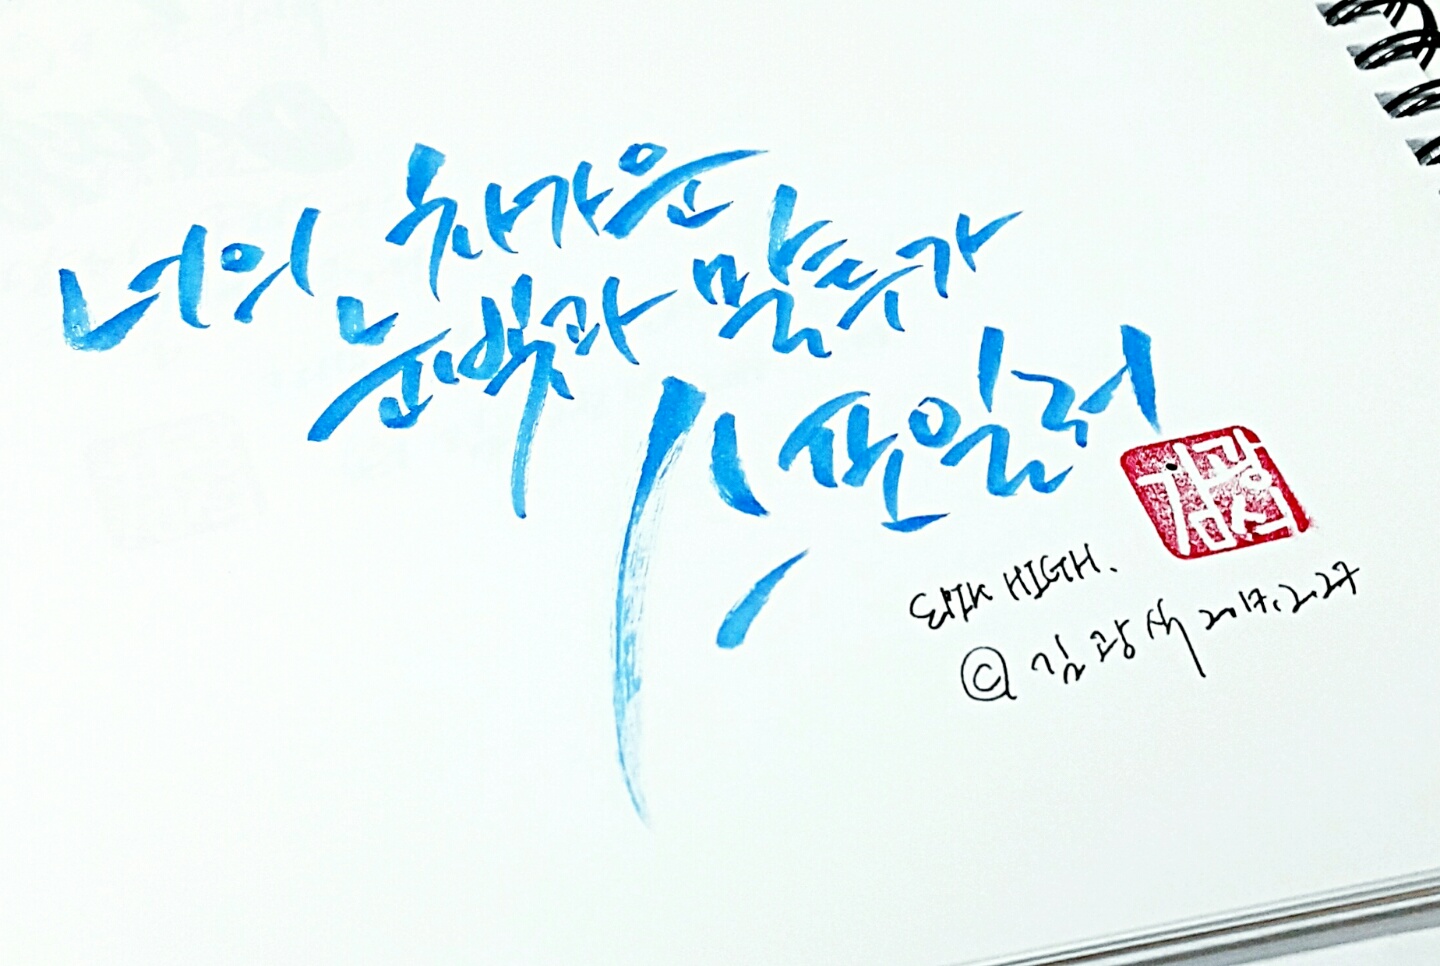 너의 차가운
눈빛과 말투가
스포일러
김광석
EPIK HIGH.
ⓒ 김광석 2017.2.27